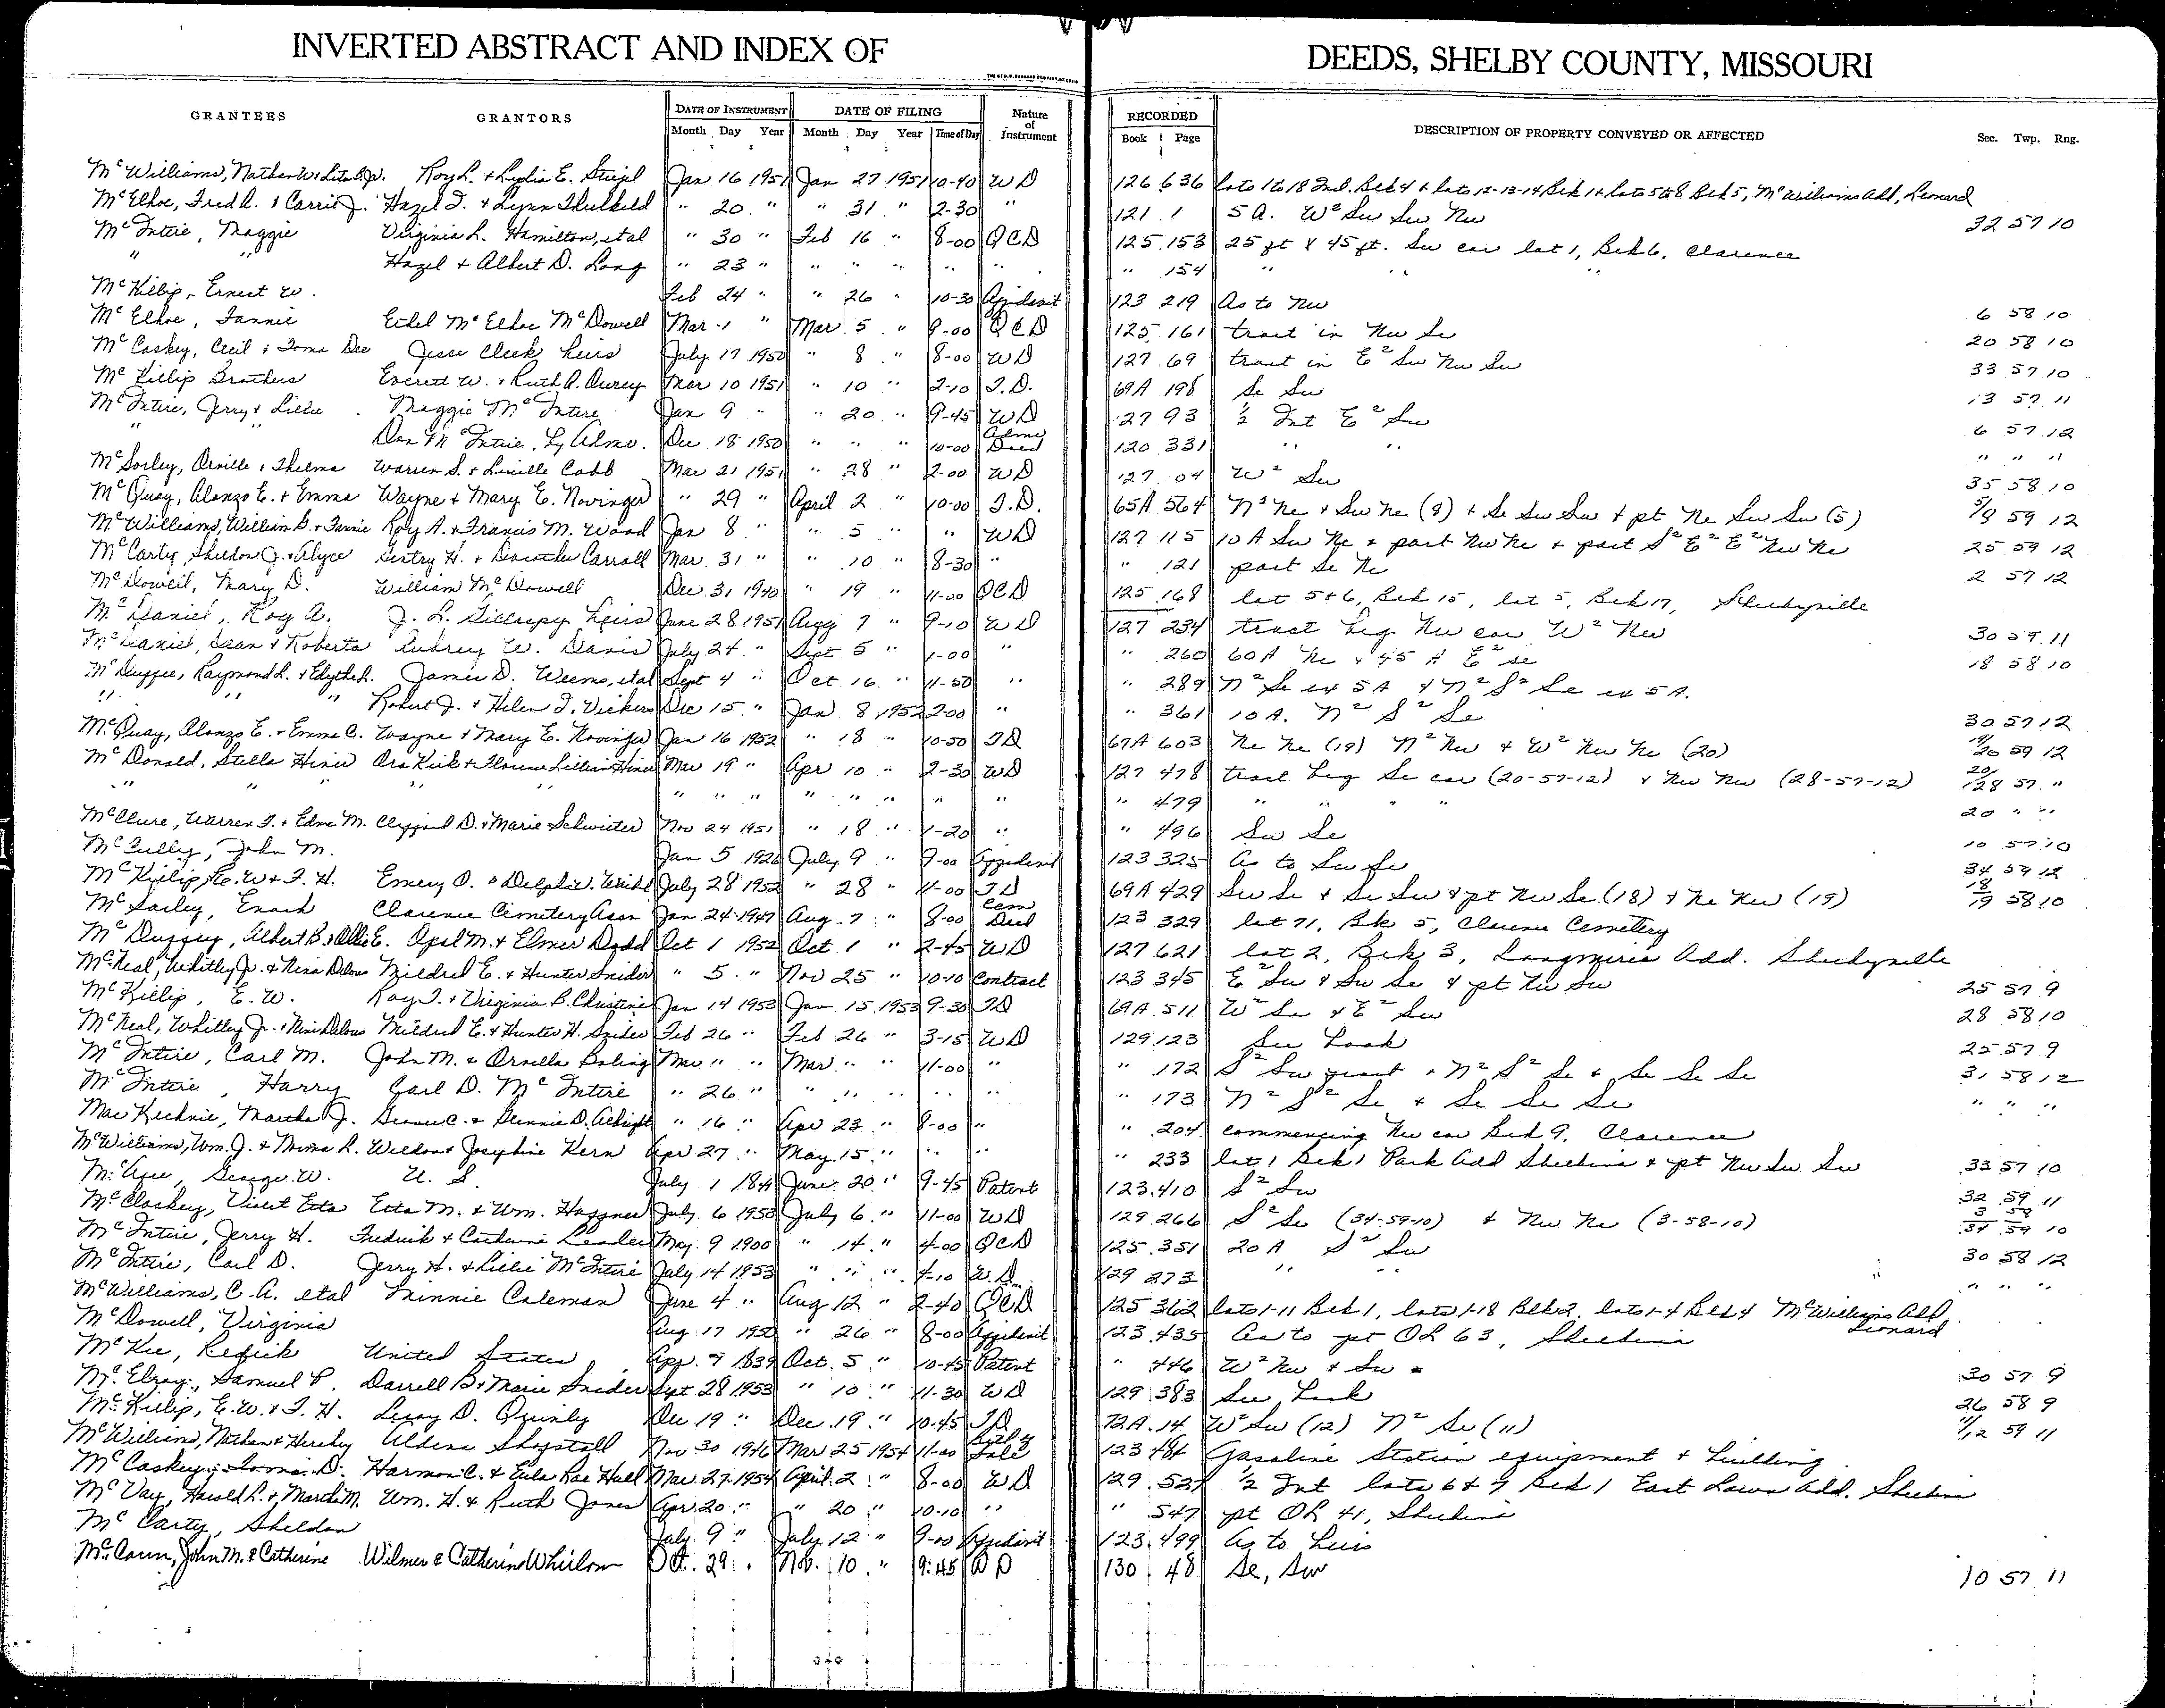 INVERTED ABSTRACT AND INDEX OF DEEDS, SHELBY COUNTY, MISSOURI
GRANTEES GRANTORS DATE OF INSTRUMENT DATE OF FILING Nature of Instrument RECORDED DESCRIPTION OF PROPERTY CONVEYED OR AFFECTED Sec. Twp. Rng.
Month Day Year Month Day Year Time of Day Book Page
McWilliams, Nathan W & Roy L. & Lydia E. Jan 16 1951 Jan 27 1951 10-40 WD 126 636 lots 1 to 18 Incl. Blk 4 & lots 12-13-14 Blk 1 & lots 5 to 8 Blk 5, McWilliams Add, Leonard
McElhoe, Fred A. & Carrie J. Hazel I. & Lynn Thelkeld " 20 " " 31 " 2-30 " 121 1 5 A. W² Sw Sw Nw 32 57 10
McIntire, Maggie Virginia L. Hamilton, etal " 30 " Feb 16 " 8-00 QCD 125 153 25 ft X 45 ft. Sw cor lot 1, Blk 6, Clarence
" " Hazel & Albert D. Long " 23 " " " " " " " 154 " " "
McKillip, Ernest W. Feb 24 " " 26 " 10-30 Affidavit 123 219 As to Nw 6 58 10
McElhoe, Fannie Ethel McElhoe McDowell Mar 1 " Mar 5 " 9-00 QCD 125 161 tract in Nw Se 20 58 10
McCaskey, Cecil & Ioma Dee Jesse Cleek heirs July 17 1950 " 8 " 8-00 WD 127 69 tract in E² Sw Nw Sw 33 57 10
McKillip Brothers Everett W. & Ruth A. Mar 10 1951 " 10 " 2-10 T.D. 69A 198 Se Sw 13 57 11
McIntire, Jerry & Lillie Maggie McIntire Jan 9 " " 20 " 9-45 WD 127 93 ½ Int E² Sw 6 57 12
" " McIntire, by Admr. Dec 18 1950 " " " 10-00 Admr Deed 120 331 " " " " "
McSorley, Orville & Thelma Warren S. & Lucille Cobb Mar 21 1951 " 28 " 2-00 WD 127 04 W² Sw 35 58 10
McQuay, Alonzo E. & Emma Wayne & Mary E. Novinger " 29 " April 2 " 10-00 T.D. 65A 564 N² Ne & Sw Ne (8) & Se Sw Sw & pt Ne Sw Sw (5) 5/8 59 12
McWilliams, William B. & Fannie Roy A. & Francis M. Wood Jan 8 " " 5 " " WD 127 115 10 A Sw Ne & part Nw Ne & part S² E² E² Nw Ne 25 59 12
McCarty, Sheldon J. & Alyce Gentry H. & Dorothy Carroll Mar 31 " " 10 " 8-30 " " 121 part Se Ne 2 57 12
McDowell, Mary D. William McDowell Dec 31 1940 " 19 " 11-00 QCD 125 168 lot 5 & 6, Blk 15, lot 5, Blk 17, Shelbyville
McDaniel, Roy A. J. L. Gillispy heirs June 28 1951 Aug 7 " 9-10 WD 127 234 tract beg Nw cor W² Nw 30 59 11
McDaniel, Dean & Roberta Aubrey W. Davis July 24 " Sept 5 " 1-00 " " 260 60 A Ne & 45 A E² Se 18 58 10
McDuffee, Raymond L. & Edythe L. James D. Weems, etal Sept 4 " Oct 16 " 11-50 " " 289 N² Se ex 5 A & N² S² Se ex 5 A.
" " " Robert J. & Helen I. Vickers Dec 15 " Jan 8 1952 2-00 " " 361 10 A. N² S² Se 30 57 12
McQuay, Alonzo E. & Emma C. Wayne & Mary E. Novinger Jan 16 1952 " 18 " 10-50 TD 67A 603 Ne Ne (19) N² Nw & W² Nw Ne (20) 19/20 59 12
McDonald, Stella Hines Ora Kirk & Florence Lillian Hines Mar 19 " Apr 10 " 2-30 WD 127 478 tract beg Se cor (20-57-12) & Nw Nw (28-57-12) 20/28 57 "
" " " " " " " " " " " 479 " " " " 20 " "
McClure, Warren I. & Edna M. Clifford D. & Marie Schwieter Nov 24 1951 " 18 " 1-20 " " 496 Sw Se 10 57 10
McCully, John M. Jan 5 1926 July 9 " 9-00 Affidavit 123 325 As to Sw Se 34 59 12
McKillip, E. W. & F. H. Emery O. & July 28 1952 " 28 " 11-00 TD 69A 429 Sw Se & Se Sw & pt Nw Se (18) & Ne Nw (19) 18/19 58 10
McSorley, Enoch Clarence Cemetery Assn Jan 24 1947 Aug 7 " 8-00 Cem Deed 123 329 lot 71, Blk 5, Clarence Cemetery
McDuffey, Albert B. & Ollie E. Opal M. & Elmer Dodd Oct 1 1952 Oct 1 " 2-45 WD 127 621 lot 2, Blk 3, Longmires Add. Shelbyville
McNeal, Whitley Jr. & Nina Delous Mildred E. & Hunter Snider " 5 " Nov 25 " 10-10 Contract 123 345 E² Sw & Sw Se & pt Nw Sw 25 57 9
McKillip, E. W. Roy I. & Virginia B. Christine Jan 14 1953 Jan 15 1953 9-30 TD 69A 511 W² Se & E² Sw 28 58 10
McNeal, Whitley Jr. & Nina Delous Mildred E. & Hunter H. Snider Feb 26 " Feb 26 " 3-15 WD 129 123 See Book 25 57 9
McIntire, Carl M. John M. & Ornella Boling Mar " " Mar " " 11-00 " " 172 S² Sw fract & N² S² Se & Se Se Se 31 58 12
McIntire, Harry Carl D. McIntire " 26 " " " " " " " 173 N² S² Se & Se Se Se " " "
MacKechnie, Martha J. " 16 " Apr 23 " 8-00 " " 204 commencing Nw cor Blk 9, Clarence
McWilliams, Wm. J. & Weldon & Josephine Kern Apr 27 " May 15 " " " " 233 lot 1 Blk 1 Park Add Shelbina & pt Nw Sw Sw 33 57 10
George W. U. S. July 1 June 20 " 9-45 Patent 123 410 S² Sw 32 59 11
McCloskey, Violet Etta Etta M. & Wm. Haggner July 6 1953 July 6 " 11-00 WD 129 266 S² Se (34-59-10) & Nw Ne (3-58-10) 3 58 / 34 59 10
McIntire, Jerry H. Fredrick & Catherine May 9 1900 " 14 " 4-00 QCD 125 351 20 A S² Sw 30 58 12
McIntire, Carl D. Jerry H. & Lillie McIntire July 14 1953 " " " 4-10 W.D. 129 273 " " " " "
McWilliams, C. A. etal Minnie Coleman June 4 " Aug 12 " 2-40 QCD 125 362 lots 1-11 Blk 1, lots 1-18 Blk 2, lots 1-4 Blk 4 McWilliams Add Leonard
McDowell, Virginia Aug 17 1950 " 26 " 8-00 Affidavit 123 435 As to pt OL 63, Shelbina
McKee, Redick United States Apr 9 1839 Oct. 5 " 10-45 Patent " 446 W² Nw & Sw 30 57 9
McElroy, Samuel P. Darrell B & Marie Snider Sept 28 1953 " 10 " 11-30 WD 129 383 See Book 26 58 9
McKillip, E. W. & F. H. Leroy D. Quinly Dec 19 " Dec 19 " 10-45 TD 72A 14 W² Sw (12) N² Se (11) 11/12 59 11
McWilliams, Nathan & Hershey Aldena Shopstall Nov 30 1946 Mar 25 1954 11-00 Bill of Sale 123 484 Gasoline Station equipment & building
McCaskey, Ioma D. Harmon C. & Eula Rae Hall Mar 27 1954 April 2 " 8-00 WD 129 527 ½ Int lots 6 & 7 Blk 1 East Lawn Add. Shelbina
McVay, Harold L. & Martha M. Wm. H. & Ruth Jones Apr 20 " " 20 " 10-10 " " 547 pt OL 41, Shelbina
McCarty, Sheldon July 9 " July 12 " 9-00 Affidavit 123 499 As to heirs
McCann, John M. & Catherine Wilmer & Catherine Whirlow Oct. 29 " Nov. 10 " 9:45 WD 130 48 Se, Sw 10 57 11